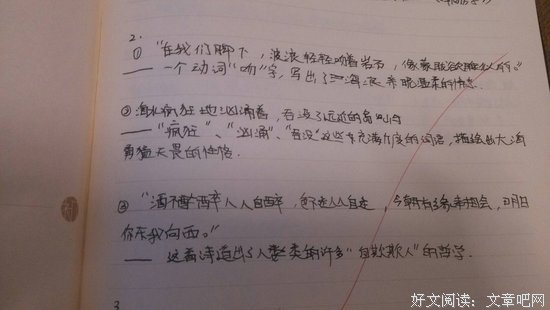 2.
① "在我们脚下，波浪轻轻吻着岩石，像朦胧欲睡似的。"
—— 一个动词"吻"字，写出了海浪 温柔的情态.
②海水疯狂地汹涌着，吞没了远近的岛屿
—— "疯狂"、"汹涌"、"吞没"这些 充满力度的词语，描绘出大海
勇猛无畏的性格.
③ "酒不醉人人自醉， 人自迷，今朝有缘来相会，明日
你东我向西。"
—— 这首诗道出了人类的许多"自欺欺人"的哲学.
3
好文阅读：文章吧网